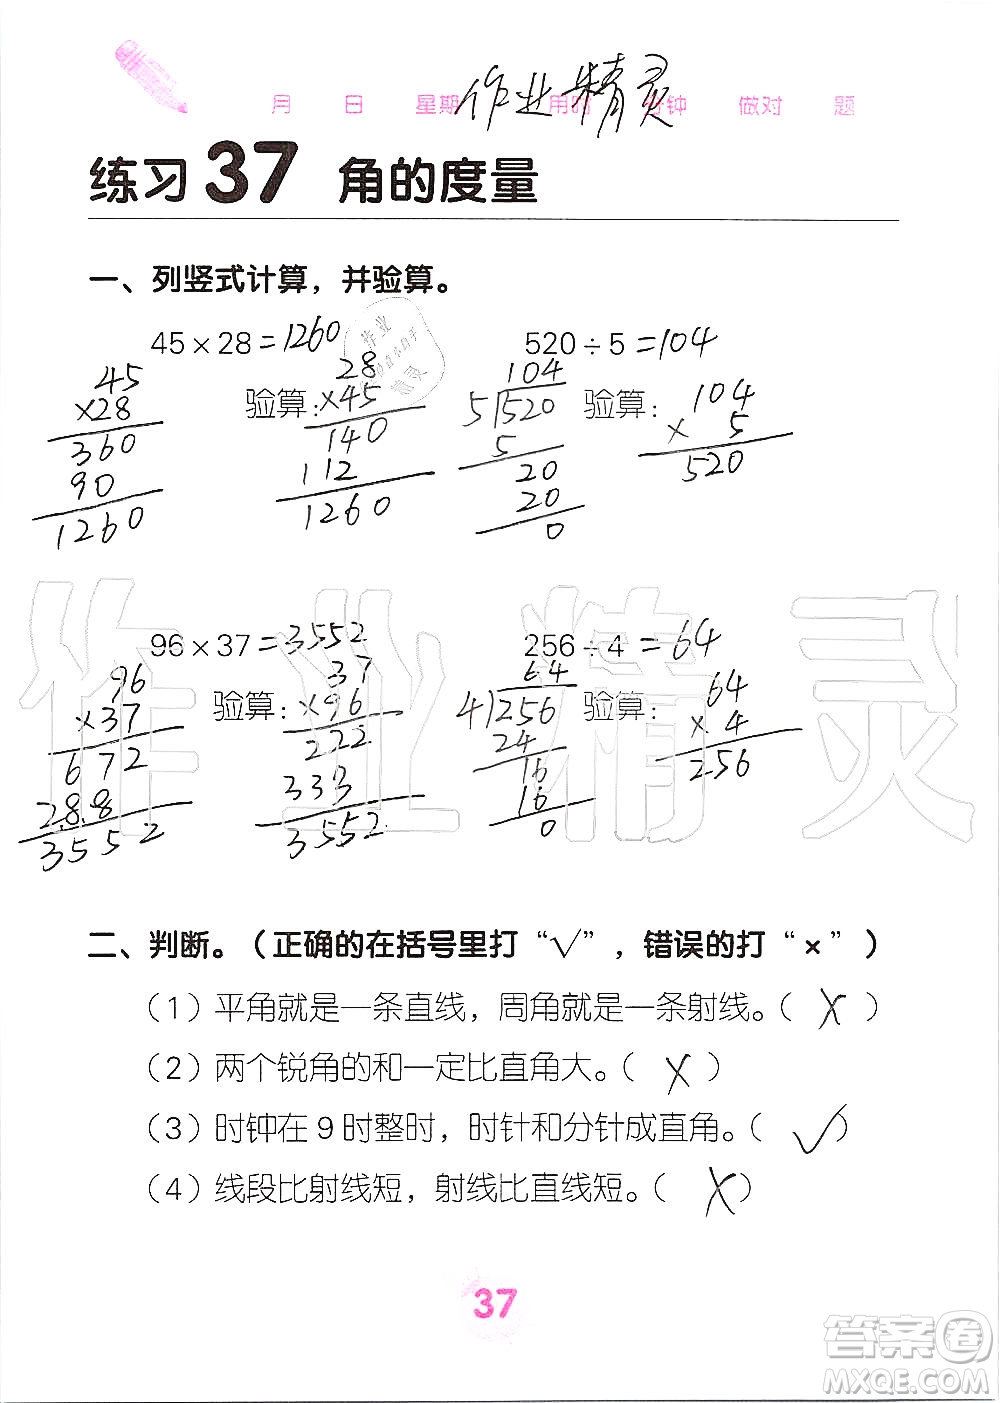 月 日 星期 用时 分钟 做对 题
作业精灵
练习 37 角的度量
一、列竖式计算，并验算。
45×28=1260 520÷5=104
45
×28
360
90
1260
验算:
28
×45
140
112
1260
104
5√520
5
20
20
0
验算:
104
× 5
520
96×37=3552 256÷4=64
96
×37
672
288
3552
验算:
37
×96
222
333
3552
64
4√256
24
16
16
0
验算:
64
× 4
256
二、判断。（正确的在括号里打“√”，错误的打“×”）
（1）平角就是一条直线，周角就是一条射线。（ X ）
（2）两个锐角的和一定比直角大。（ X ）
（3）时钟在 9 时整时，时针和分针成直角。（ √ ）
（4）线段比射线短，射线比直线短。（ X ）
37
作业精灵
答案卷
MXQE.COM